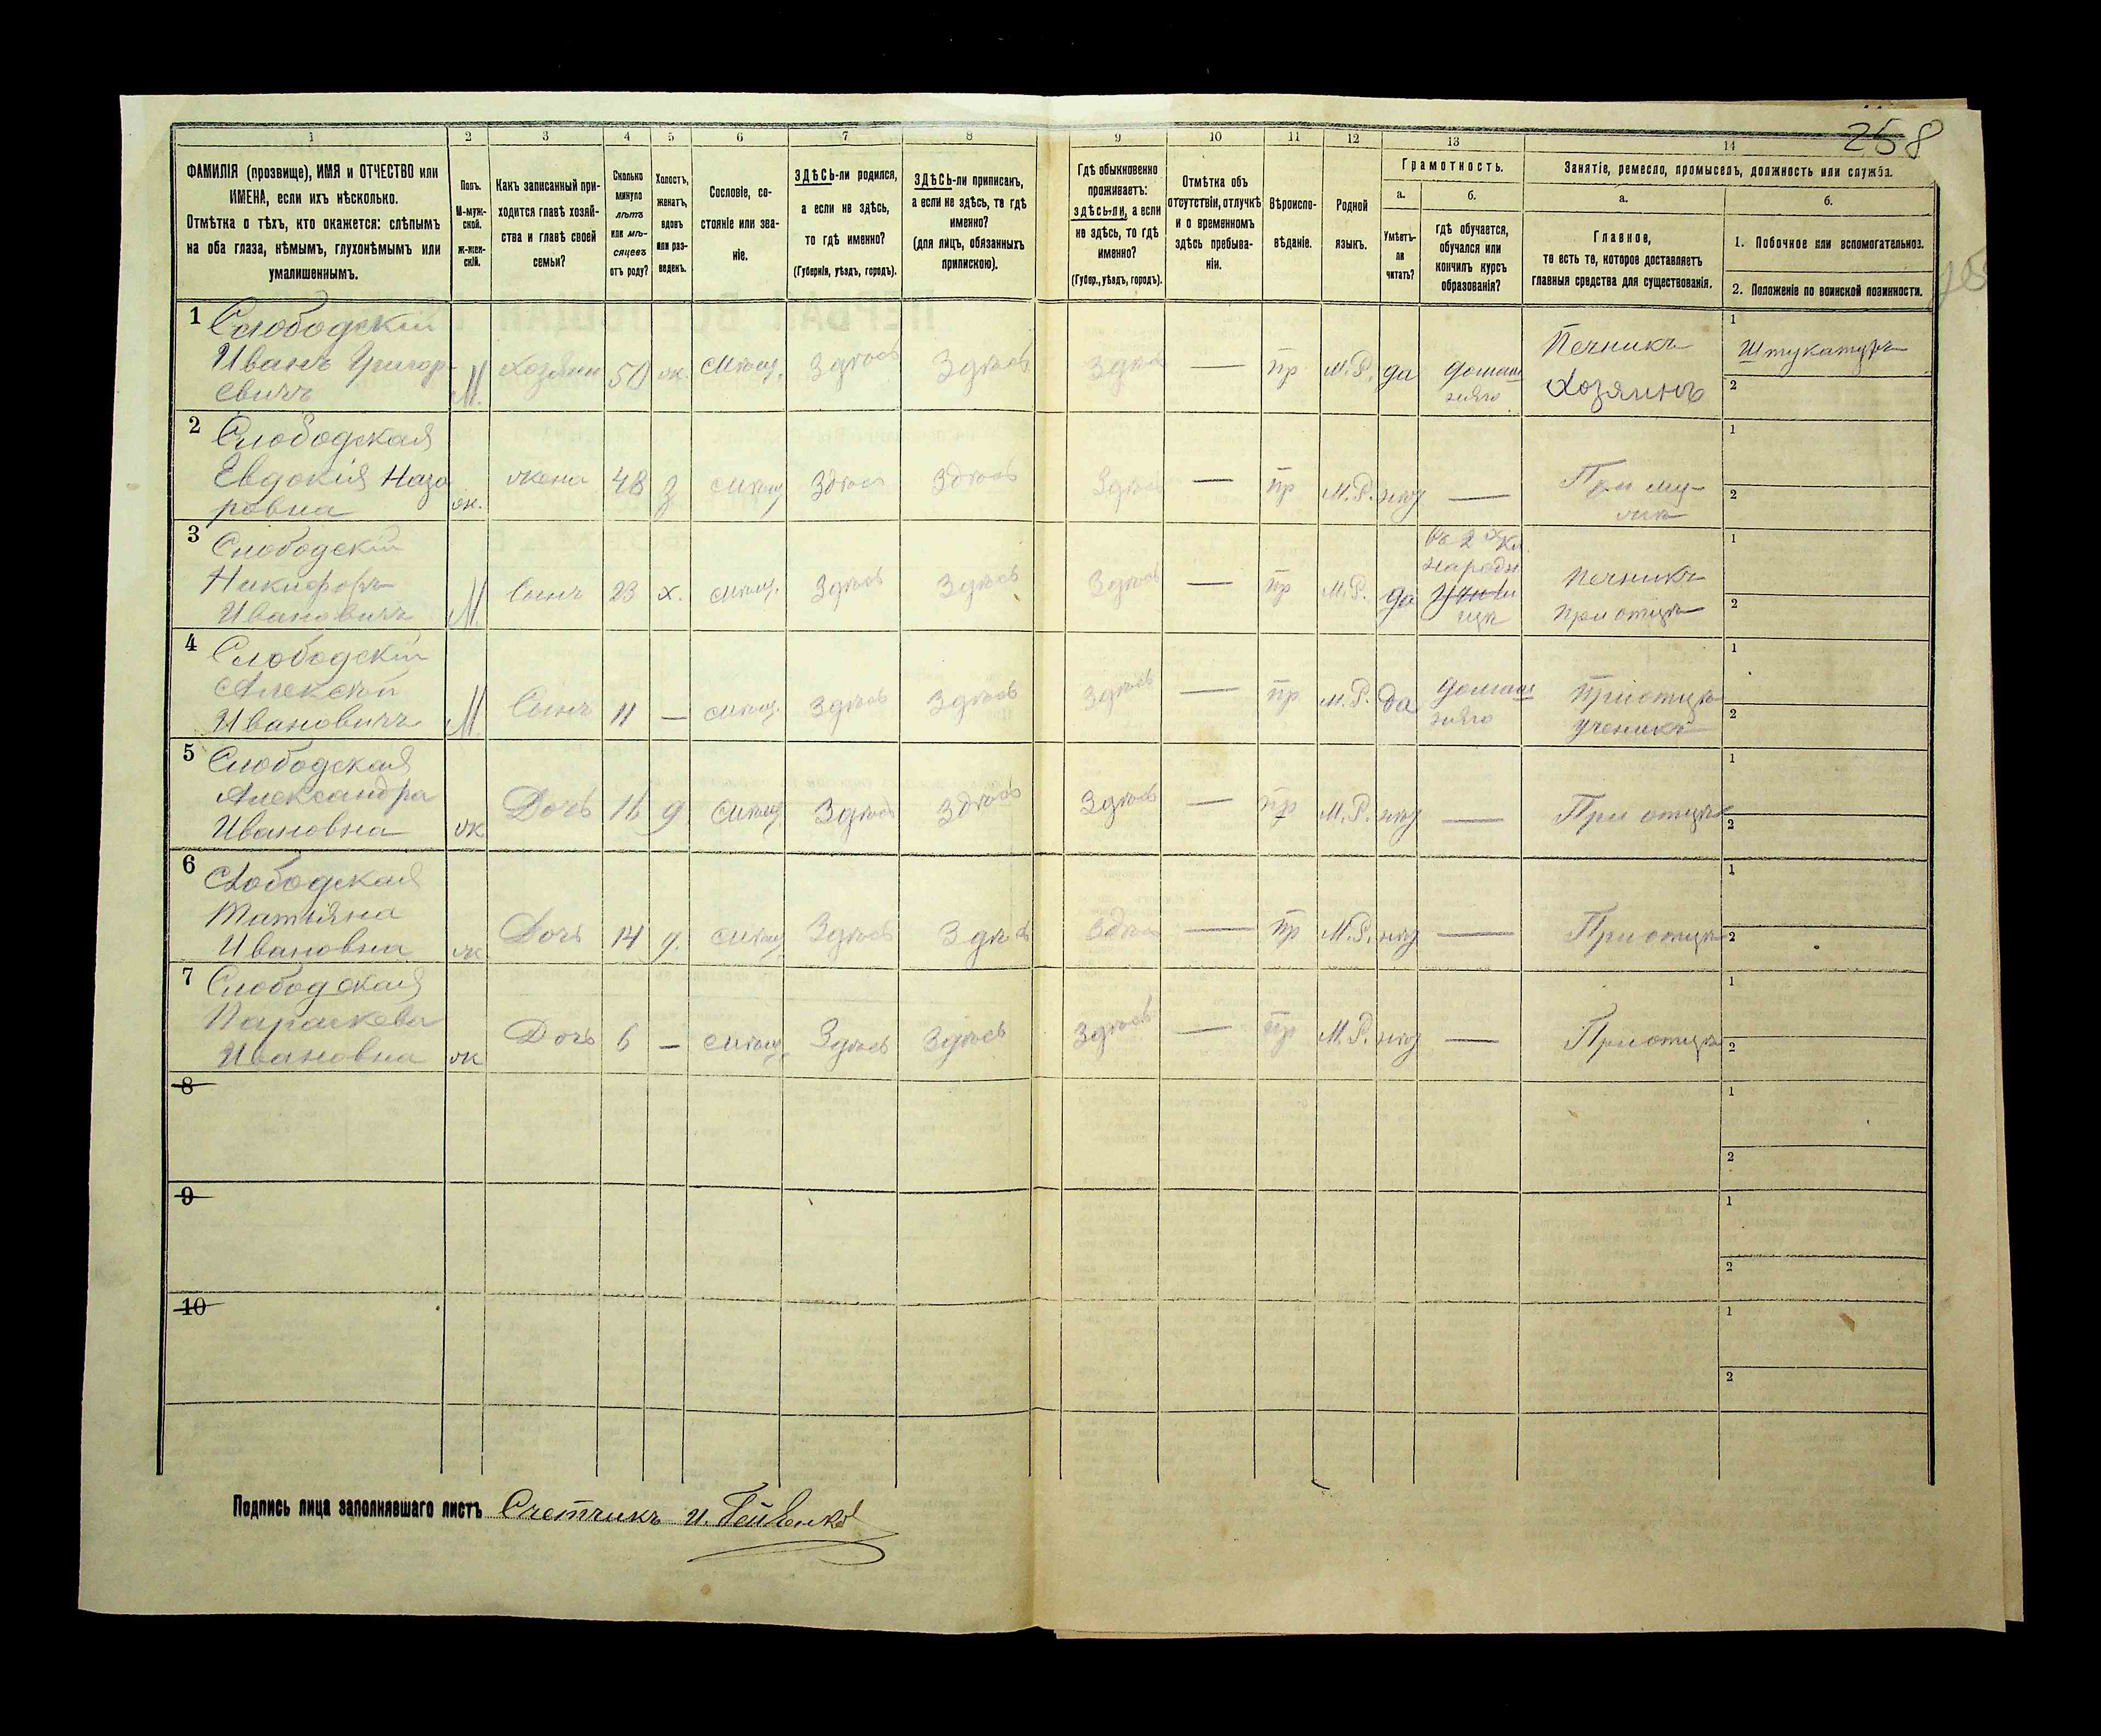 258
1 2 3 4 5 6 7 8 9 10 11 12 13 14
ФАМИЛІЯ (прозвище), ИМЯ и ОТЧЕСТВО или
ИМЕНА, если ихъ нѣсколько.
Отмѣтка о тѣхъ, кто окажется: слѣпымъ
на оба глаза, нѣмымъ, глухонѣмымъ или
умалишеннымъ.
Полъ.
М-муж-
ской.
Ж-жен-
скій.
Какъ записанный при-
ходится главѣ хозяй-
ства и главѣ своей
семьи?
Сколько
минуло
лѣтъ
или мѣ-
сяцевъ
отъ роду?
Холостъ,
женатъ,
вдовъ
или раз-
веденъ.
Сословіе, со-
стояніе или зва-
ніе.
ЗДѢСЬ-ли родился,
а если не здѣсь,
то гдѣ именно?
(Губернія, уѣздъ, городъ).
ЗДѢСЬ-ли приписанъ,
а если не здѣсь, то гдѣ
именно?
(для лицъ, обязанныхъ
припискою).
Гдѣ обыкновенно
проживаетъ:
здѣсь-ли, а если
не здѣсь, то гдѣ
именно?
(Губер., уѣздъ, городъ).
Отмѣтка объ
отсутствіи, отлучкѣ
и о временномъ
здѣсь пребыва-
ніи.
Вѣроиспо-
вѣданіе.
Родной
языкъ.
Грамотность.
а.
Умѣетъ-
ли
читать?
б.
гдѣ обучается,
обучался или
кончилъ курсъ
образованія?
Занятіе, ремесло, промыселъ, должность или служба.
а.
Главное,
то есть то, которое доставляетъ
главныя средства для существованія.
б.
1. Побочное или вспомогательное.
2. Положеніе по воинской повинности.
1 Слободскій
Иванъ Григор-
евичъ
М. Хозяин 50 ж. Мѣщ. Здѣсь Здѣсь Здѣсь — пр М.Р. да домаш
няго
Печникъ
Хозяинъ
1
Штукатуръ
2
2 Слободская
Евдокія Наза
ровна
ж. жена 48 з мѣщ Здѣсь Здѣсь Здѣсь — пр М.Р. нѣт —
При му-
жѣ
1
2
3 Слободскій
Никифоръ
Ивановичъ
М. Сынъ 23 х. мѣщ. Здѣсь Здѣсь Здѣсь — пр М.Р. да
Въ 2 х Кл.
народн
учили
щѣ
Печникъ
при отцѣ
1
2
4 Слободскій
Алексѣй
Ивановичъ
М. Сынъ 11 — мѣщ. Здѣсь Здѣсь Здѣсь — пр М.Р. да домаш
няго
При отцѣ
ученикъ
1
2
5 Слободская
Александра
Ивановна
ж Дочь 16 д мѣщ Здѣсь Здѣсь Здѣсь — пр М.Р. нѣт —
При отцѣ
1
2
6 Слободская
Татьяна
Ивановна
ж Дочь 14 д. мѣщ Здѣсь Здѣсь Здѣсь — пр М.Р. нѣт —
При отцѣ
1
2
7 Слободская
Параскева
Ивановна
ж Дочь 6 — мѣщ Здѣсь Здѣсь Здѣсь — пр М.Р. нѣт —
При отцѣ
1
2
8
1
2
9
1
2
10
1
2
Подпись лица заполнявшаго листъ Счетчикъ И.